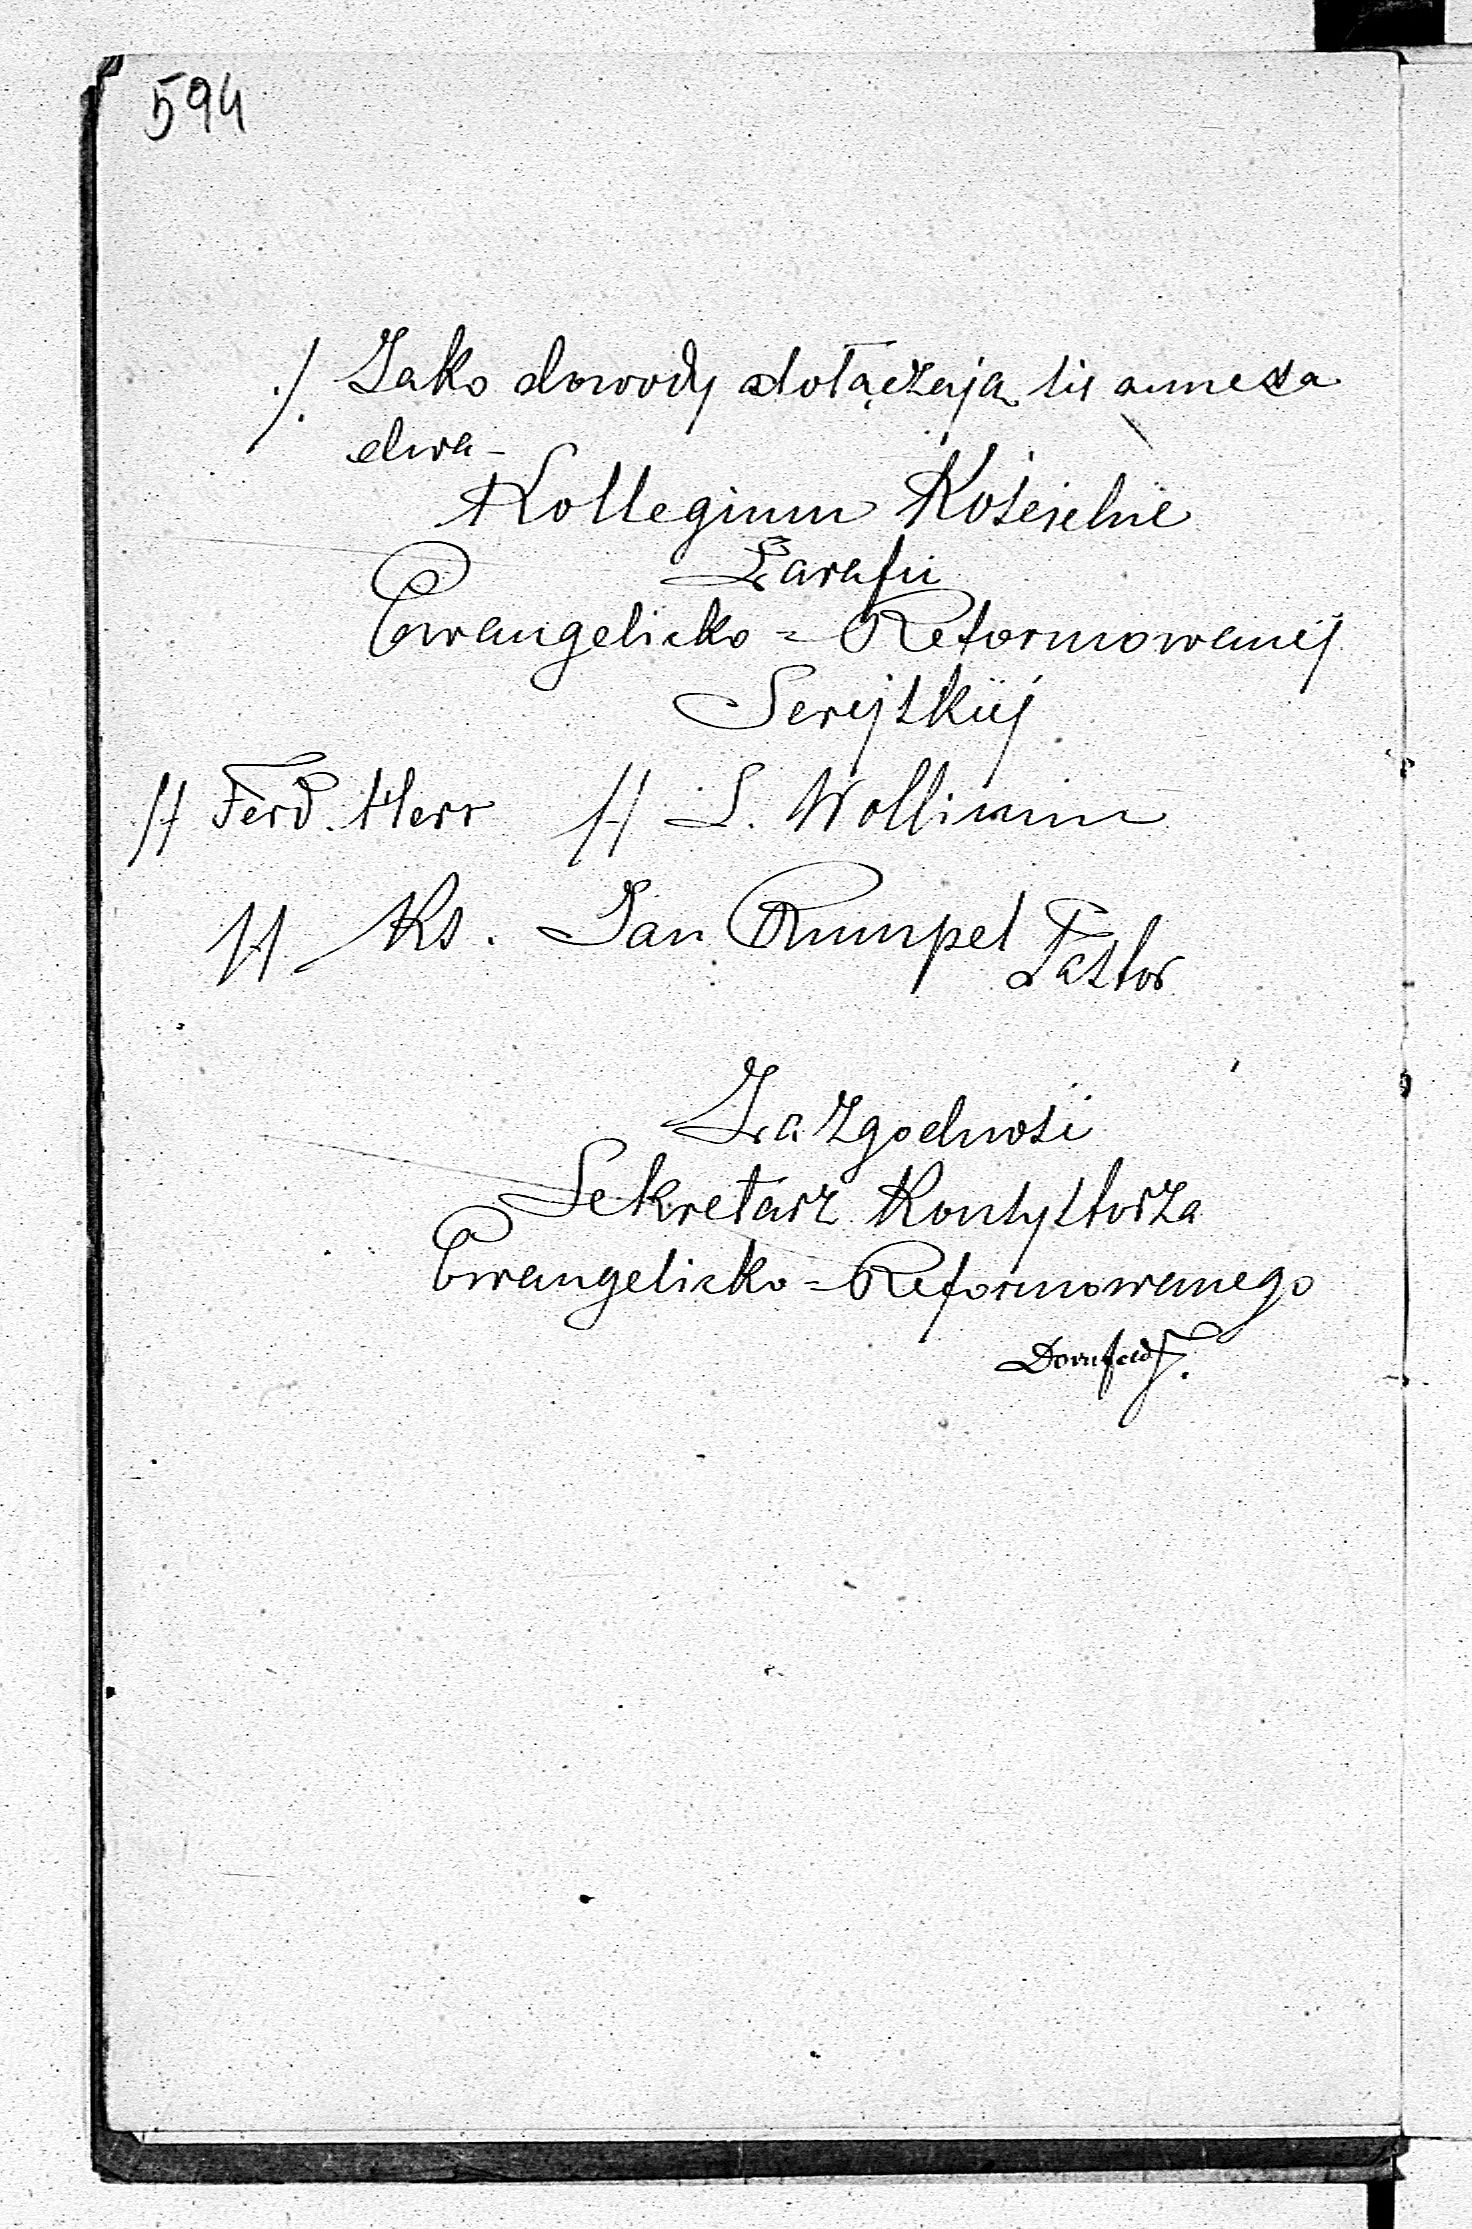 594
./. Jako dowody dołączają się annexa
dwa –
Kollegium Kościelne
Parafii
Ewangelicko = Reformowanéj
Serejskiéj
// Ferd. Herr // L. Wollimm
// Ks. Jan Rumpel Pastor
Za zgodność
Sekretarz Konsystorza
Ewangelicko = Reformowanego
Dornfeld